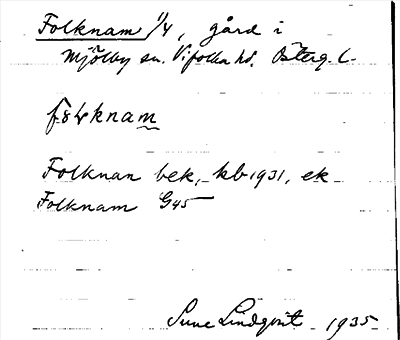 Folknam 1/4, gård i
Mjölby sn. Vifolka hd. Österg. l.
Folknan bek, kb 1931, ek
Folknam G45
Sune Lindqvist 1935